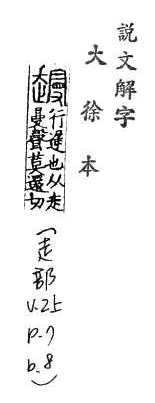 說文解字
大徐本
行遲也从走
曼聲莫還切
(走部 V.2上 P.7 b.8)